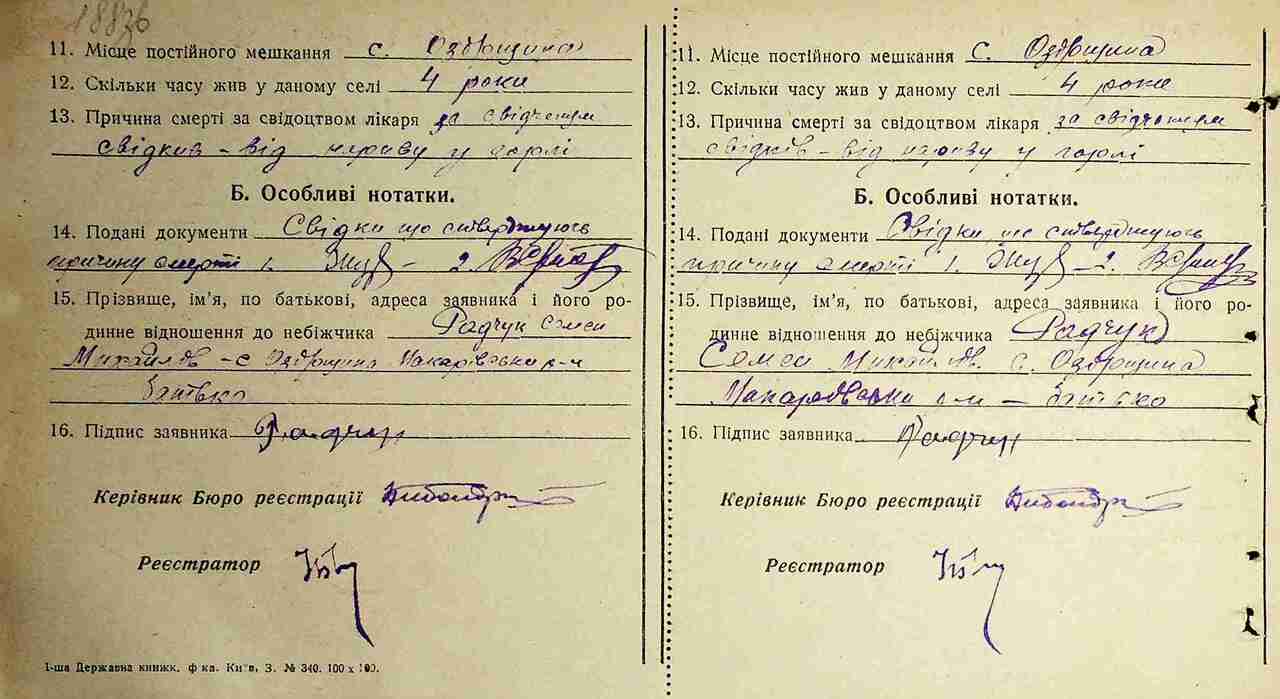 18836
11. Місце постійного мешкання с. Озірщина
12. Скільки часу жив у даному селі 4 роки
13. Причина смерті за свідоцтвом лікаря за свідченням
свідків – від нариву у горлі
Б. Особливі нотатки.
14. Подані документи Свідки що стверджують
причину смерті 1. 2.
15. Прізвище, ім’я, по батькові, адреса заявника і його ро-
динне відношення до небіжчика Радчук
с. Озірщина Макарівськи р-н
батько
16. Підпис заявника Радчук
Керівник Бюро реєстрації
Реєстратор
І-ша Державна книжк. ф-ка. Київ. З. № 340. 100 х 100.
11. Місце постійного мешкання с. Озірщина
12. Скільки часу жив у даному селі 4 роки
13. Причина смерті за свідоцтвом лікаря за свідченням
свідків – від нариву у горлі
Б. Особливі нотатки.
14. Подані документи Свідки що стверджують
причину смерті 1. 2.
15. Прізвище, ім’я, по батькові, адреса заявника і його ро-
динне відношення до небіжчика Радчук
с. Озірщина
р-н – батько
16. Підпис заявника Радчук
Керівник Бюро реєстрації
Реєстратор